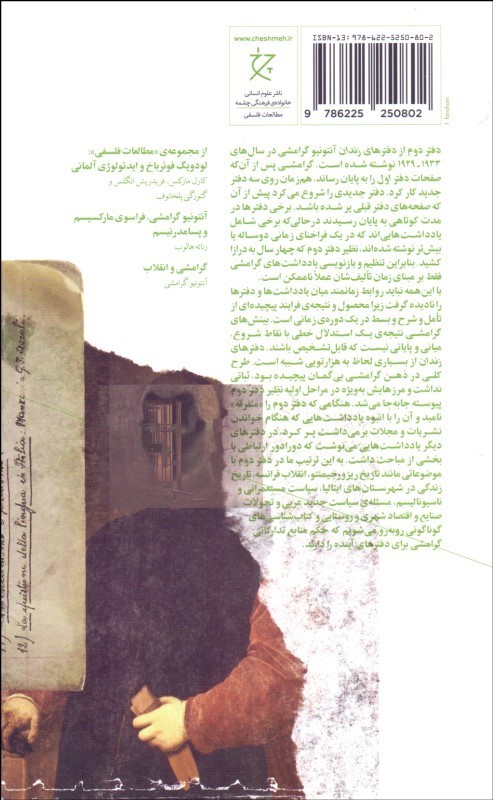 ISBN-13: 978-622-5250-80-2
9 786225 250802
www.cheshmeh.ir
ناشر علوم انسانی
خانواده‌ی فرهنگی چشمه
مطالعات فلسفی
دفتر دوم از دفترهای زندان آنتونیو گرامشی در سال‌های
۱۹۳۳-۱۹۲۹ نوشته شده است. گرامشی پس از آن‌که
صفحات دفتر اول را به پایان رساند، هم‌زمان روی سه دفتر
جدید کار کرد. دفتر جدیدی را شروع می‌کرد پیش از آن
که صفحه‌های دفتر قبلی پر شده باشد. برخی دفترها در
مدت کوتاهی به پایان رسیدند درحالی‌که برخی شامل
یادداشت‌هایی‌اند که در یک فراخنای زمانی دوساله یا
بیش‌تر نوشته شده‌اند، نظیر دفتر دوم که چهار سال به درازا
کشید. بنابراین تنظیم و بازنویسی یادداشت‌های گرامشی
فقط بر مبنای زمان تألیف‌شان عملاً ناممکن است.
با این‌همه نباید روابط زمانمند میان یادداشت‌ها و دفترها
را نادیده گرفت زیرا محصول و نتیجه‌ی فرایند پیچیده‌ای از
تأمل و شرح و بسط در یک دوره‌ی زمانی است. بینش‌های
گرامشی نتیجه‌ی یک استدلال خطی با نقاط شروع،
میانی و پایانی نیست که قابل‌تشخیص باشند. دفترهای
زندان از بسیاری لحاظ به هزارتویی شبیه است. طرح
کلی در ذهن گرامشی بی‌گمان پیچیده بود، ثباتی
نداشت و مرزهایش به‌ویژه در مراحل اولیه نظیر دفتر دوم
پیوسته جابه‌جا می‌شد. هنگامی که دفتر دوم را «متفرقه»
نامید و آن را با انبوه یادداشت‌هایی که هنگام خواندن
نشریات و مجلات برمی‌داشت پر کرد، در دفترهای
دیگر یادداشت‌هایی می‌نوشت که دورادور ارتباطی با
بخشی از مباحث داشت. به این ترتیب ما در دفتر دوم با
موضوعاتی مانند تاریخ ریزورجیمنتو، انقلاب فرانسه، تاریخ
زندگی در شهرستان‌های ایتالیا، سیاست مستعمراتی و
ناسیونالیسم، مسئله‌ی سیاست جدید عربی و تحولات
صنایع و اقتصاد شهری و روستایی و کتاب‌شناسی‌های
گوناگونی روبه‌رو می‌شویم که حکم منابع تدارکاتی
گرامشی برای دفترهای آینده را دارند.
از مجموعه‌ی «مطالعات فلسفی»:
لودویگ فوئرباخ و ایدئولوژی آلمانی
کارل مارکس، فریدریش انگلس و
گئورگی پلخانوف
آنتونیو گرامشی، فراسوی مارکسیسم
و پسامدرنیسم
رناته هالوب
گرامشی و انقلاب
آنتونیو گرامشی
12) La quistione della lingua in Italia: Manzoni e G. I. Ascoli